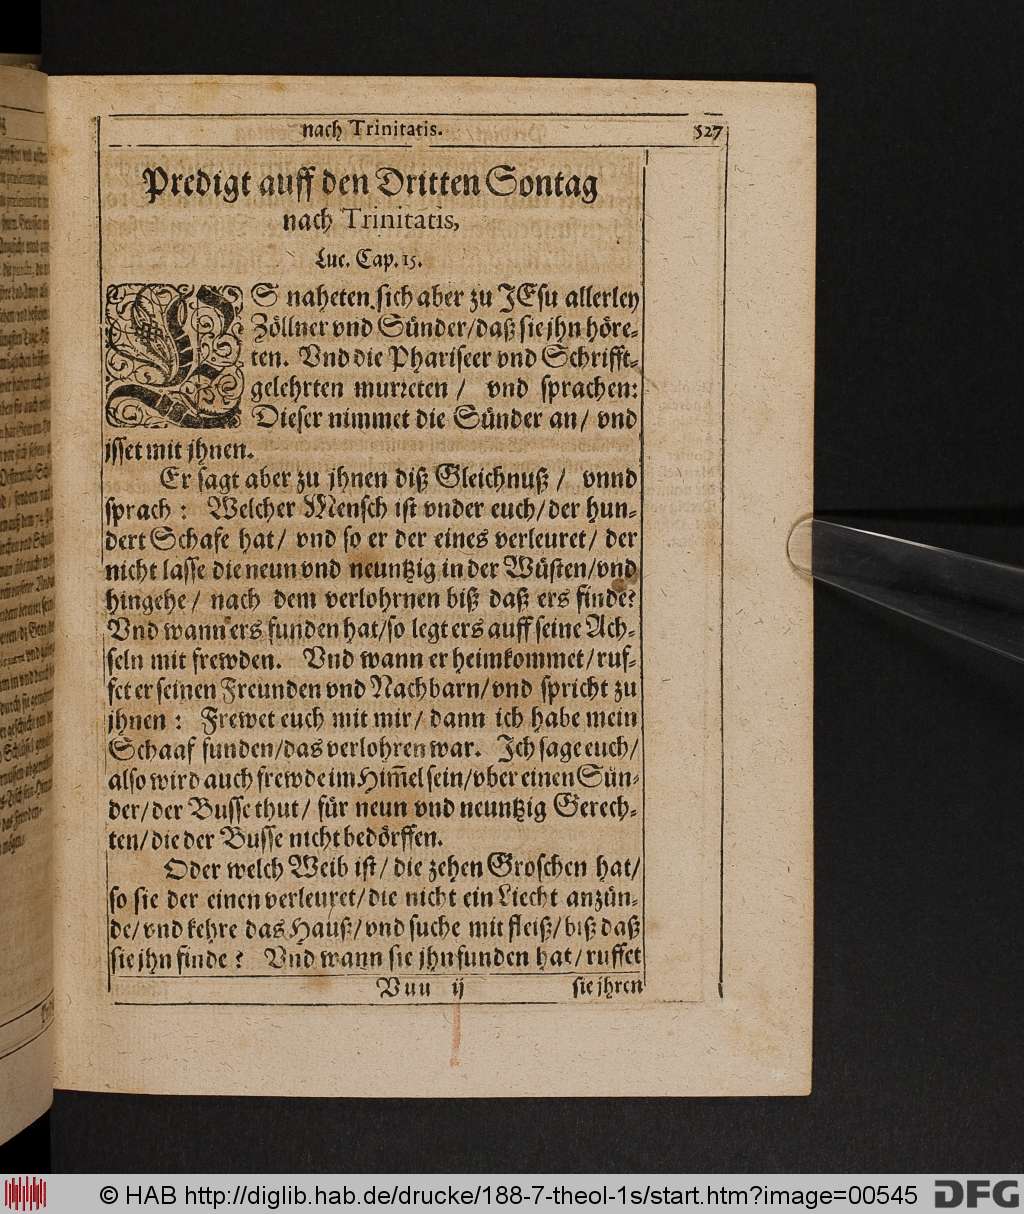 nach Trinitatis.
527
Predigt auff den Dritten Sontag
nach Trinitatis,
Luc. Cap. 15.
ES naheten sich aber zu JEsu allerley
Zöllner vnd Sünder/daß sie jhn höre-
ten. Vnd die Phariseer vnd Schrifft-
gelehrten murreten / vnd sprachen:
Dieser nimmet die Sünder an/ vnd
isset mit jhnen.
Er sagt aber zu jhnen diß Gleichnuß / vnnd
sprach : Welcher Mensch ist vnder euch/der hun-
dert Schafe hat/ vnd so er der eines verleuret/ der
nicht lasse die neun vnd neuntzig in der Wüsten/vnd
hingehe/ nach dem verlohrnen biß daß ers finde?
Vnd wann ers funden hat/so legt ers auff seine Ach-
seln mit frewden. Vnd wann er heimkommet/ruf-
fet er seinen Freunden vnd Nachbarn/vnd spricht zu
jhnen : Frewet euch mit mir/ dann ich habe mein
Schaaf funden/das verlohren war. Ich sage euch/
also wird auch frewde im Him̃el sein/vber einen Sün-
der/der Busse thut/ für neun vnd neuntzig Gerech-
ten/die der Busse nicht bedörffen.
Oder welch Weib ist/ die zehen Groschen hat/
so sie der einen verleuret/die nicht ein Liecht anzün-
de/vnd kehre das Hauß/vnd suche mit fleiß/biß daß
sie jhn finde ? Vnd wann sie jhn funden hat/ruffet
Vuu ij
sie jhren
© HAB http://diglib.hab.de/drucke/188-7-theol-1s/start.htm?image=00545
DFG